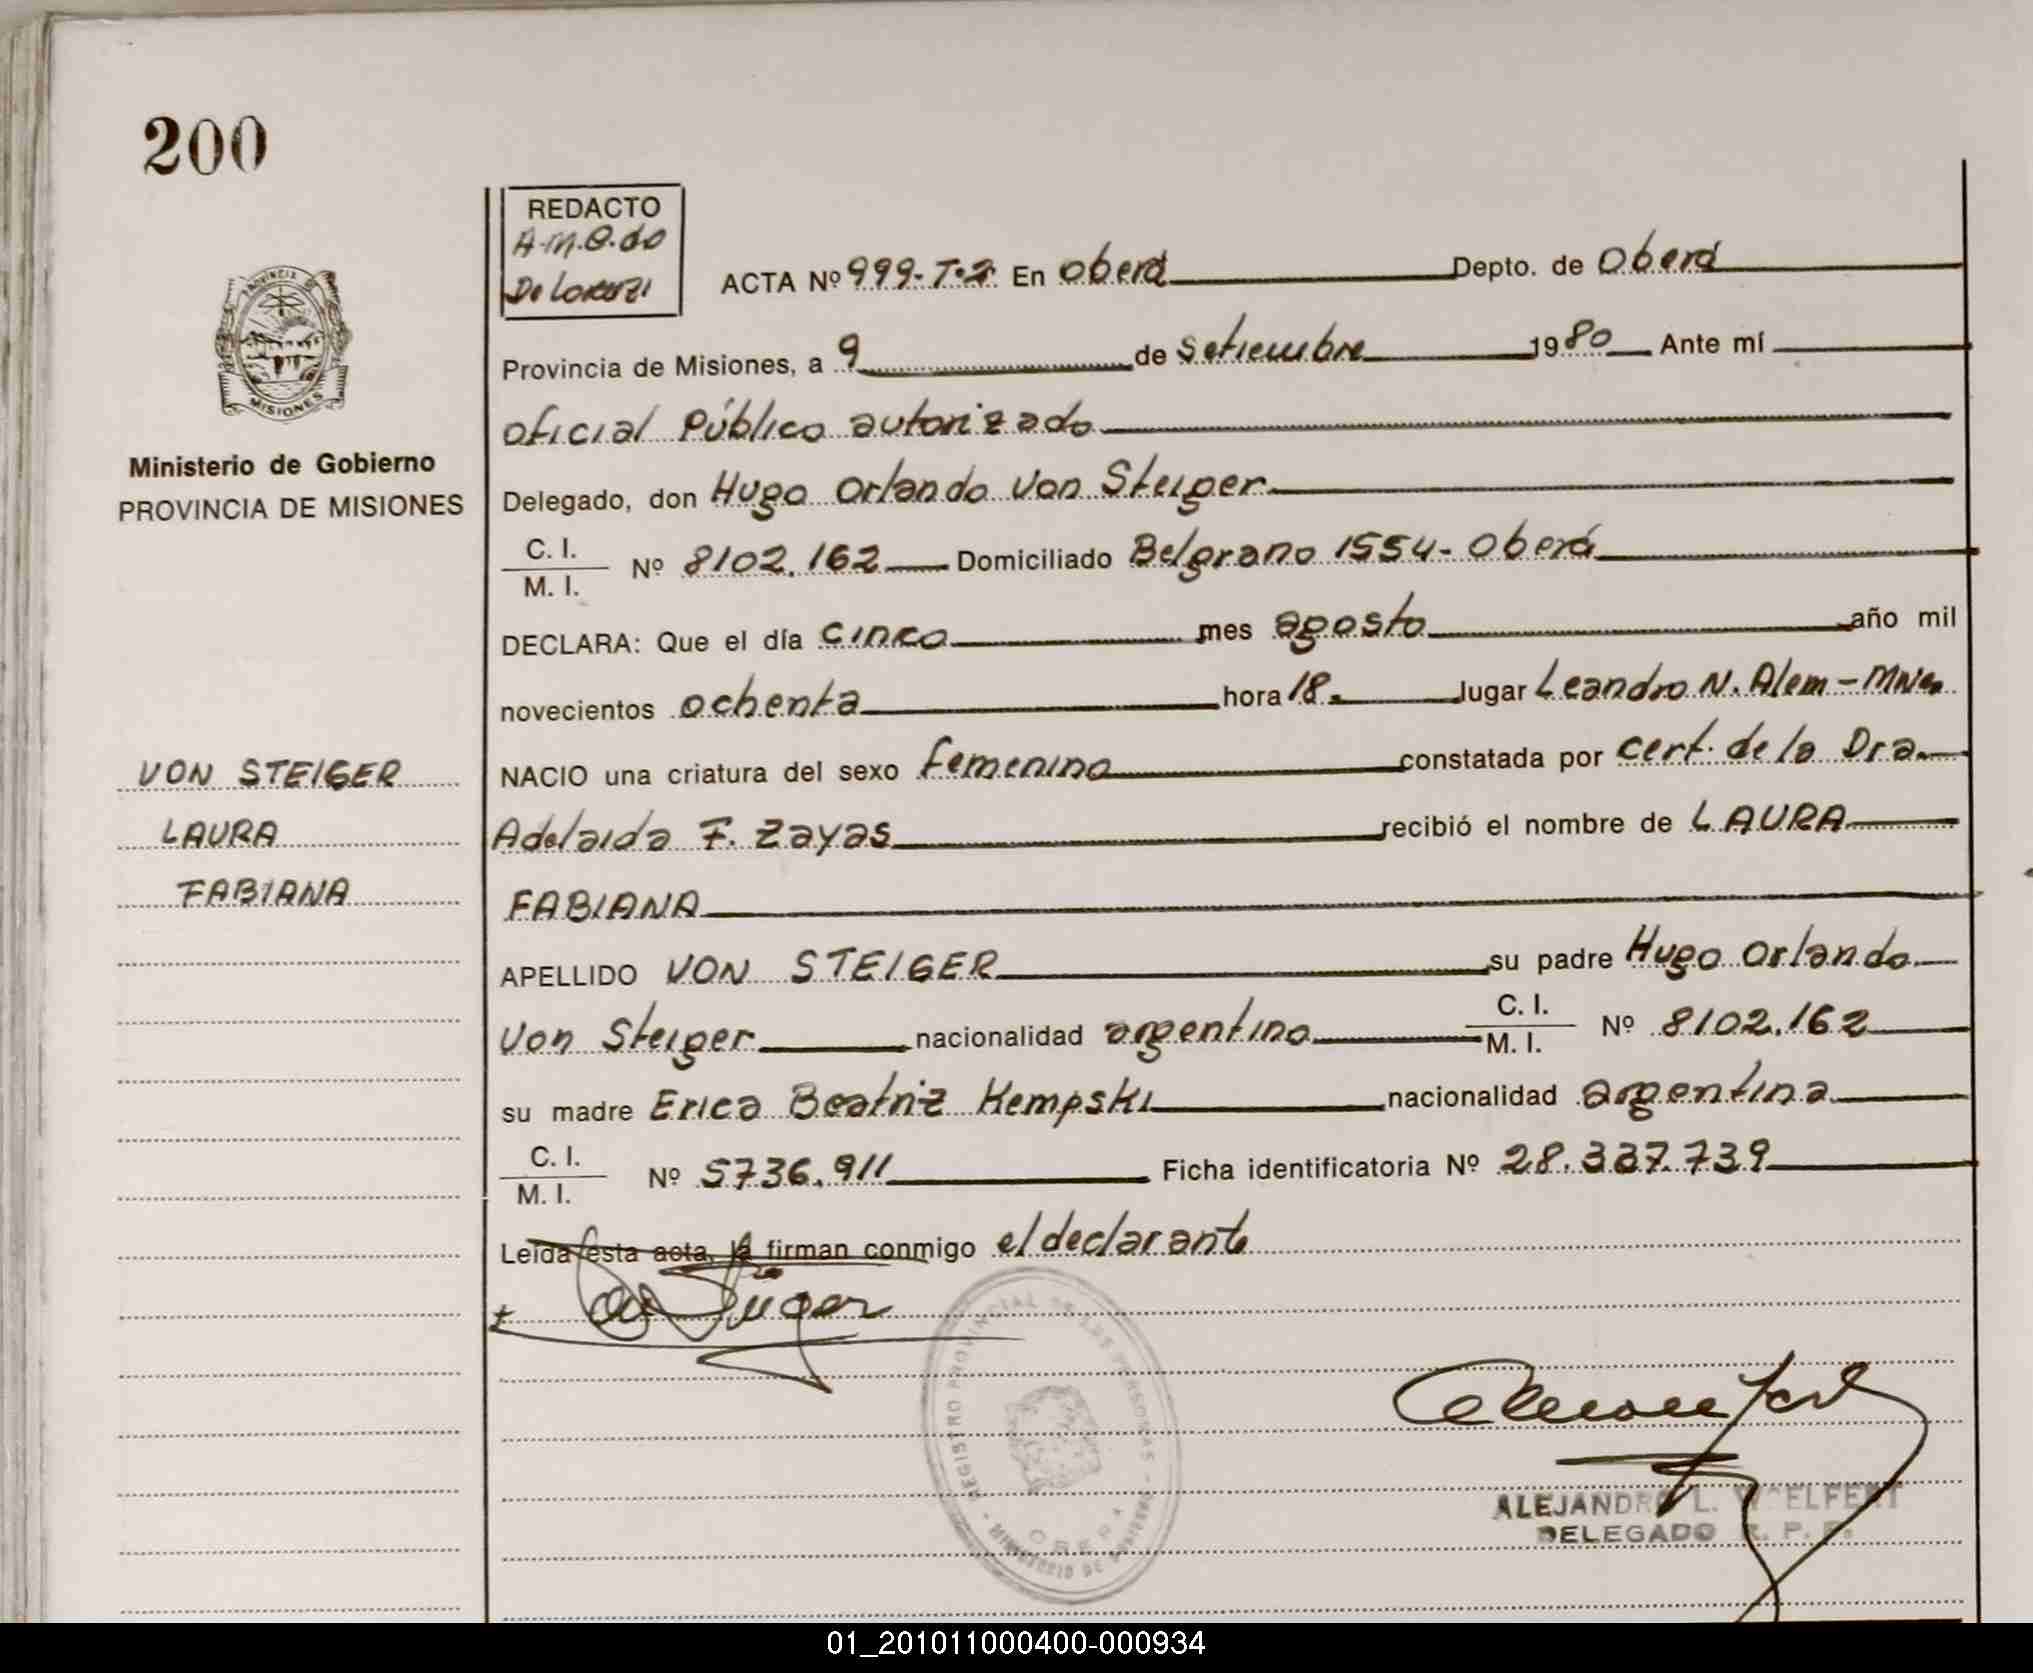 200
REDACTO
A.M.O. do
De Lorenzi
ACTA Nº 999-T-2 En Oberá Depto. de Oberá
Provincia de Misiones, a 9 de Setiembre 1980 Ante mí
oficial Público autorizado
Delegado, don Hugo Orlando von Steiger
C. I.
M. I. Nº 8102.162 Domiciliado Belgrano 1554 - Oberá
DECLARA: Que el día cinco mes agosto año mil
novecientos ochenta hora 18. lugar Leandro N. Alem - Mnes
NACIO una criatura del sexo femenino constatada por cert. de la Dra.
Adelaida F. Zayas recibió el nombre de LAURA
FABIANA
APELLIDO VON STEIGER su padre Hugo Orlando
von Steiger nacionalidad argentino C. I.
M. I. Nº 8102.162
su madre Erica Beatriz Kempski nacionalidad argentina
C. I.
M. I. Nº 5736.911 Ficha identificatoria Nº 28.337.739
Leída esta acta, la firman conmigo el declarante
PROVINCIA DE
MISIONES
Ministerio de Gobierno
PROVINCIA DE MISIONES
VON STEIGER
LAURA
FABIANA
REGISTRO PROVINCIAL DE LAS PERSONAS - MINISTERIO DE GOBIERNO
OBERA
ALEJANDRO L. WOELFERT
DELEGADO R. P. P.
01_201011000400-000934